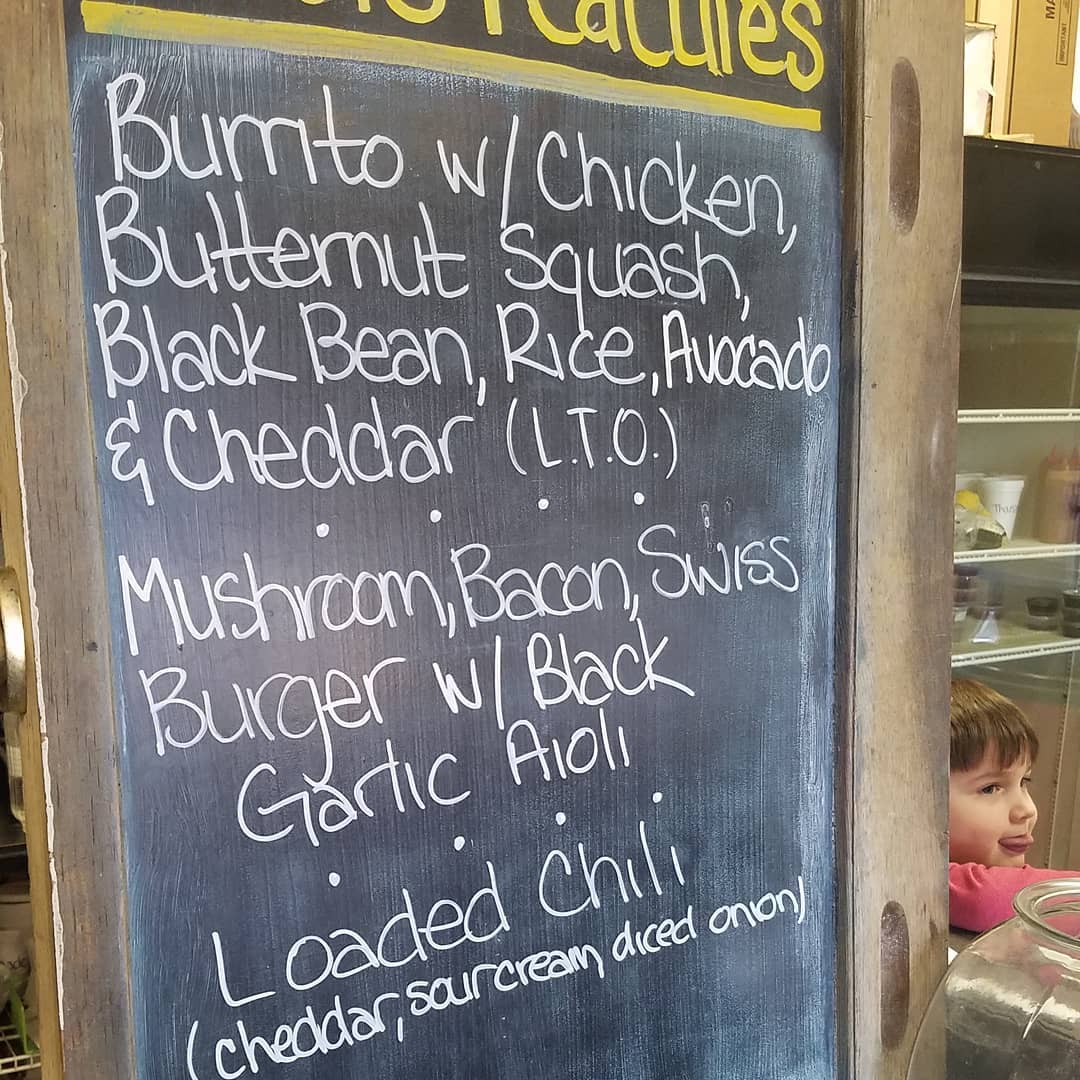 Features
Burrito w/ Chicken,
Butternut Squash,
Black Bean, Rice, Avocado
& Cheddar (L.T.O.)
Mushroom, Bacon, Swiss
Burger w/ Black
Garlic Aioli
Loaded Chili
(cheddar, sour cream, diced onion)